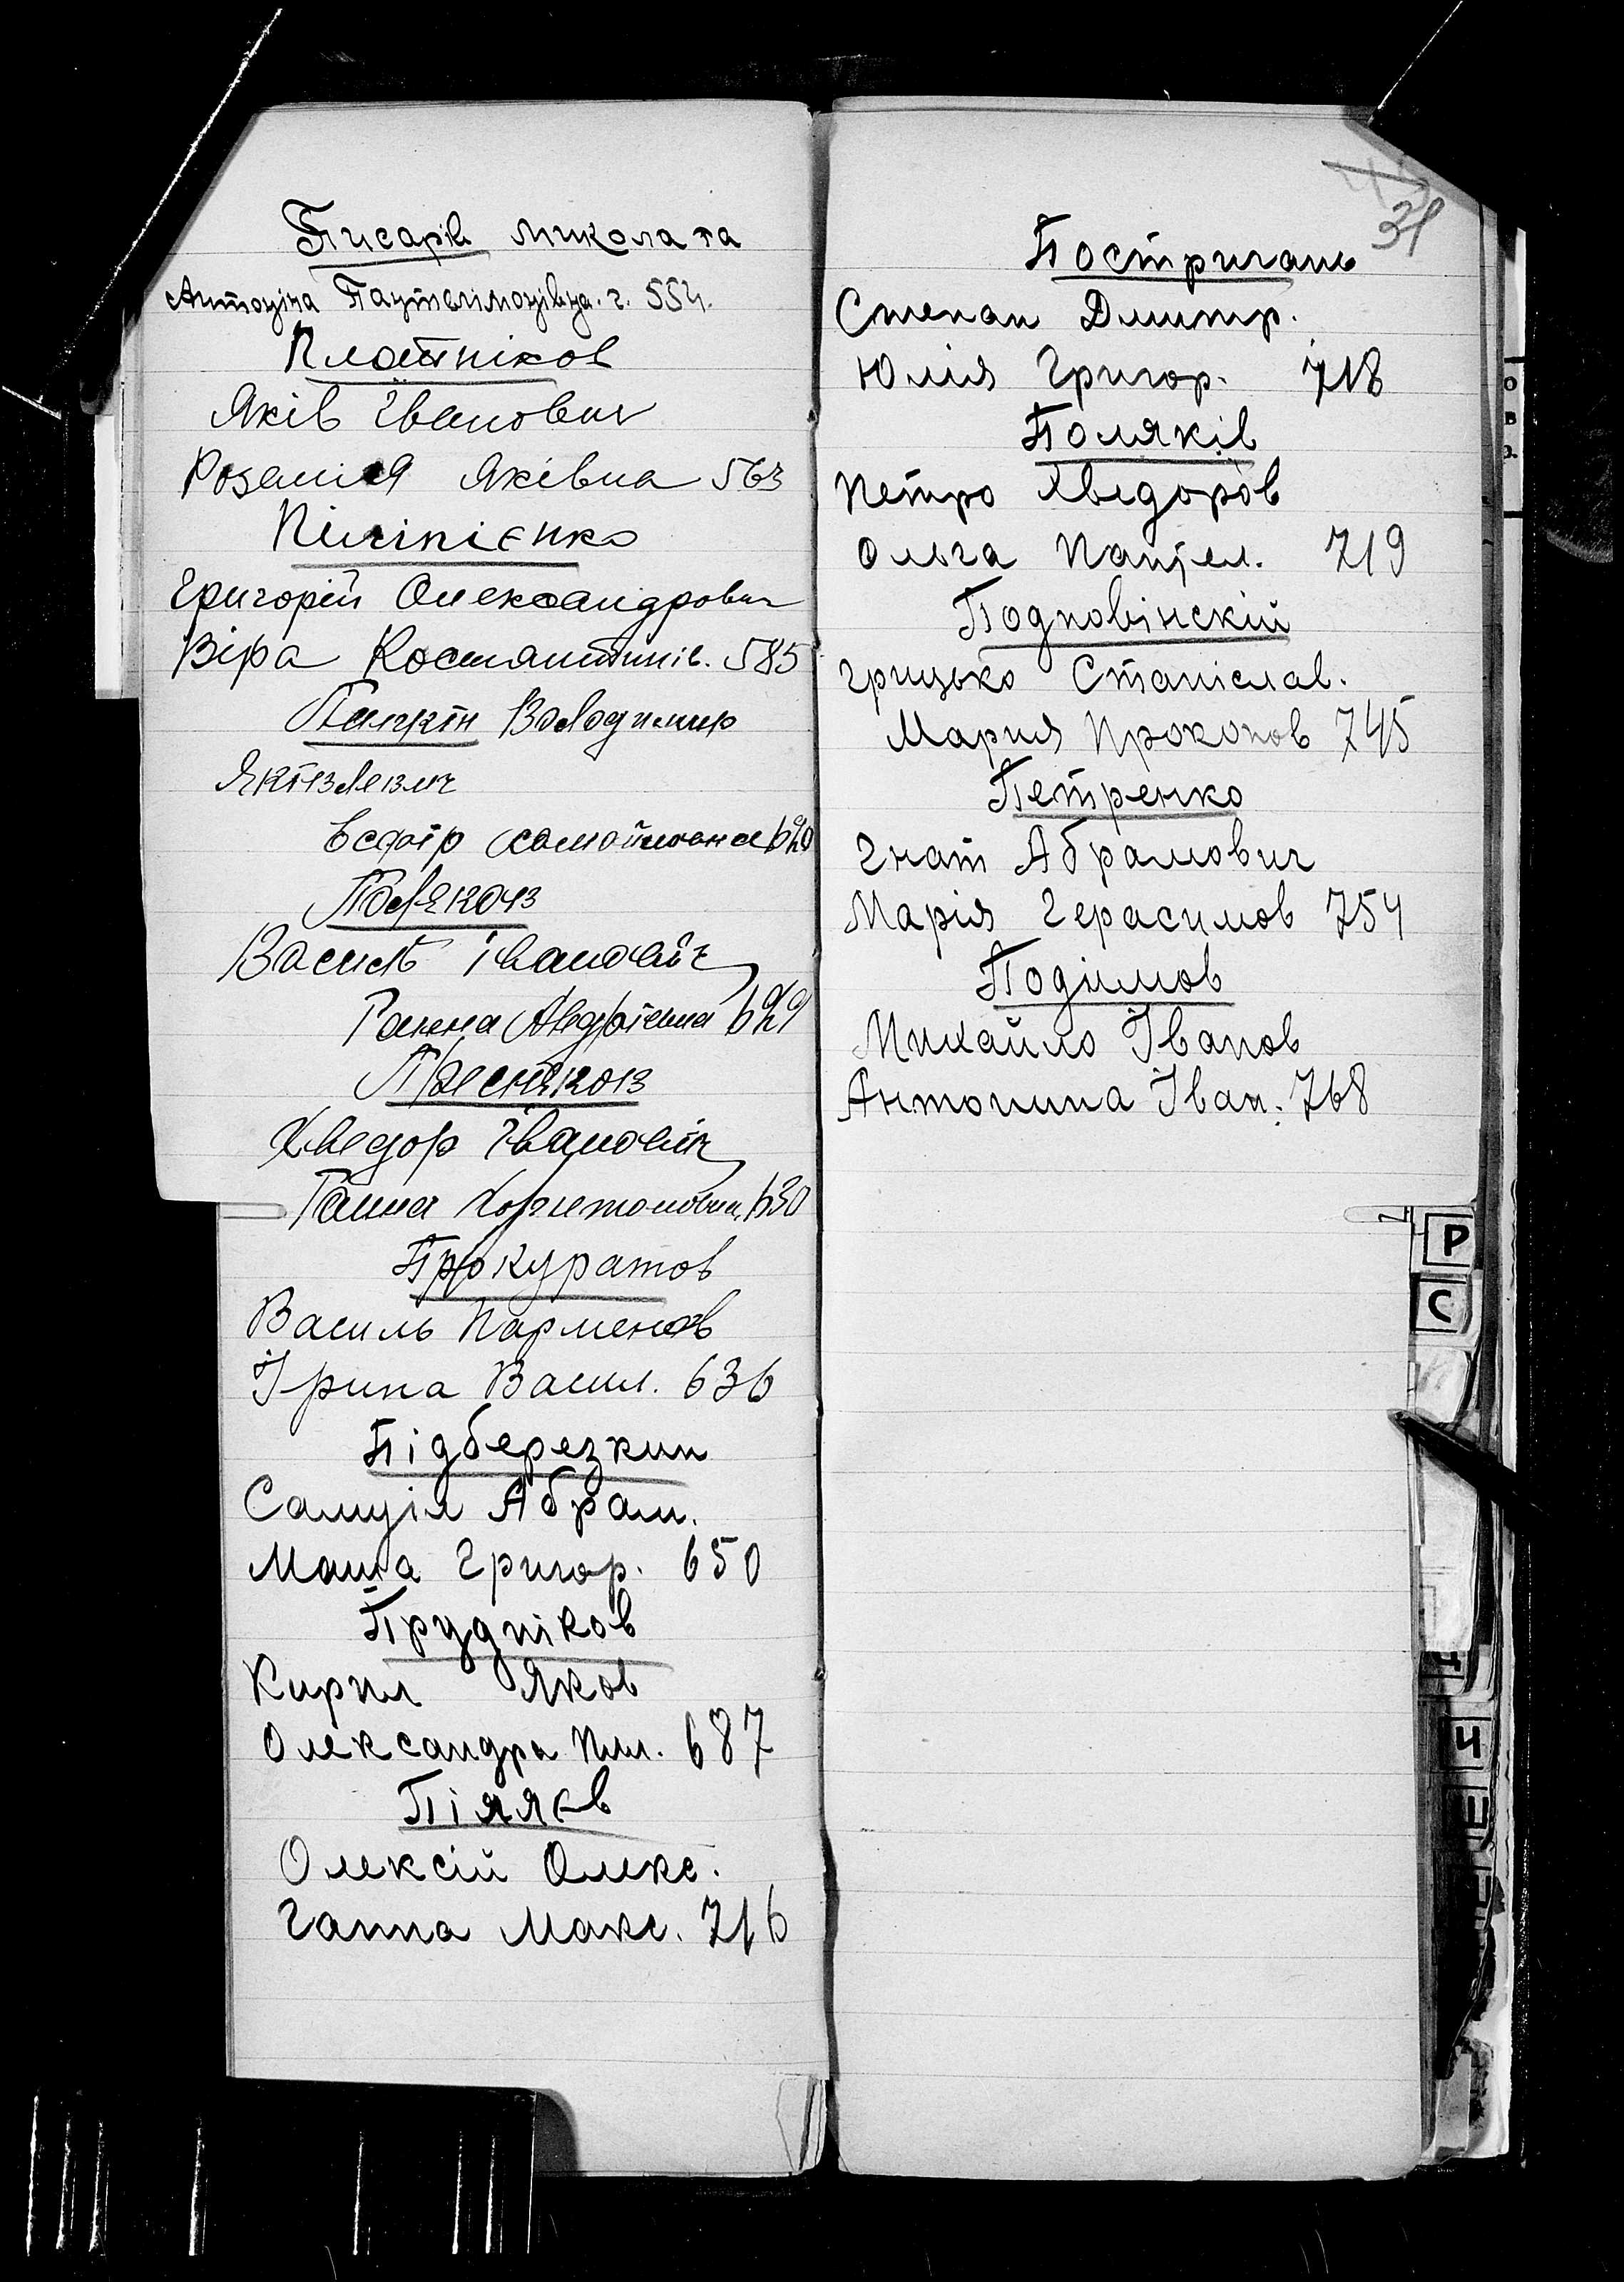 Писарів Микола та
Антоніна Пантелімонівна. г. 554.
Плотніков
Яків Іванович
Розалія Яківна 563
Піліпієнко
Григорій Олександрович
Віра Костянтинів. 585
Володимир
620
Поляков
Василь Іванович
Ганна 629
Пресняков
Хведор Іванович
Ганна Харитоновна 630
Прокуратов
Василь Парменов
Ірина Васил. 636
Підберезкин
Самуіл Абрам.
Маша Григор. 650
Прудніков
Кирил Яков
Олександра Пил. 687
Олексій Олекс.
Ганна Макс. 716
31
Постригань
Степан Дмитр.
Юлія Григор. 718
Поляків
Петро Хведоров
Ольга Пантел. 719
Подповінскій
Грицько Станіслав.
Мария Прокопов 745
Петренко
Гнат Абрамович
Марія Герасимов 754
Подимов
Михайло Іванов
Антонина Іван. 768
Р
С
Ч